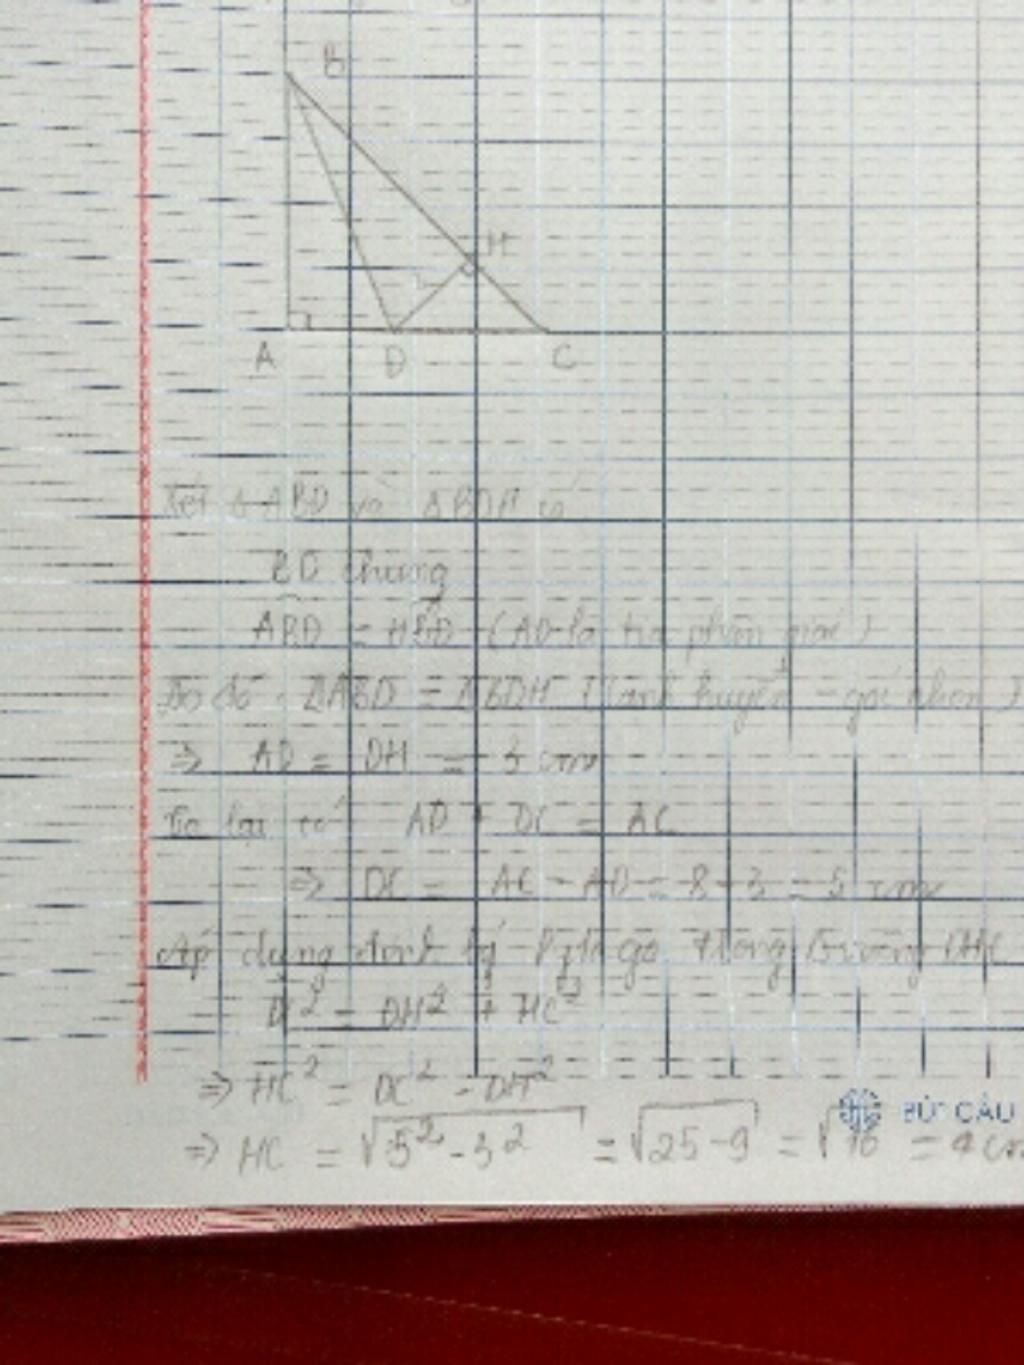 B
H
A D C
Xét Δ ABD và Δ BDH có
BD chung
ABD = HBD (AD là tia phân giác)
Do đó ΔABD = ΔBDH (cạnh huyền - góc nhọn)
⇒ AD = DH = 3 cm
Ta lại có AD + DC = AC
⇒ DC = AC - AD = 8 - 3 = 5 cm
Áp dụng định lý Pytago trong vuông DHC
DC² = DH² + HC²
⇒ HC² = DC² - DH²
⇒ HC = √5² - 3² = √25 - 9 = √16 = 4 cm
BÚT CÂU